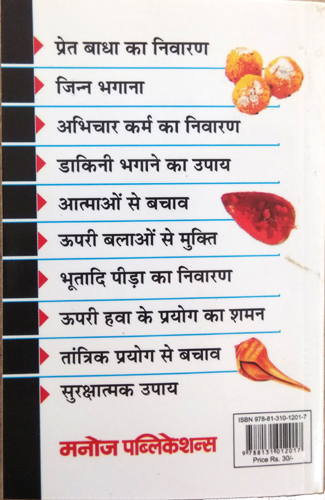 प्रेत बाधा का निवारण
जिन्न भगाना
अभिचार कर्म का निवारण
डाकिनी भगाने का उपाय
आत्माओं से बचाव
ऊपरी बलाओं से मुक्ति
भूतादि पीड़ा का निवारण
ऊपरी हवा के प्रयोग का शमन
तांत्रिक प्रयोग से बचाव
सुरक्षात्मक उपाय
मनोज पब्लिकेशन्स
ISBN 978-81-310-1201-7
9788131012017
Price Rs. 30/-